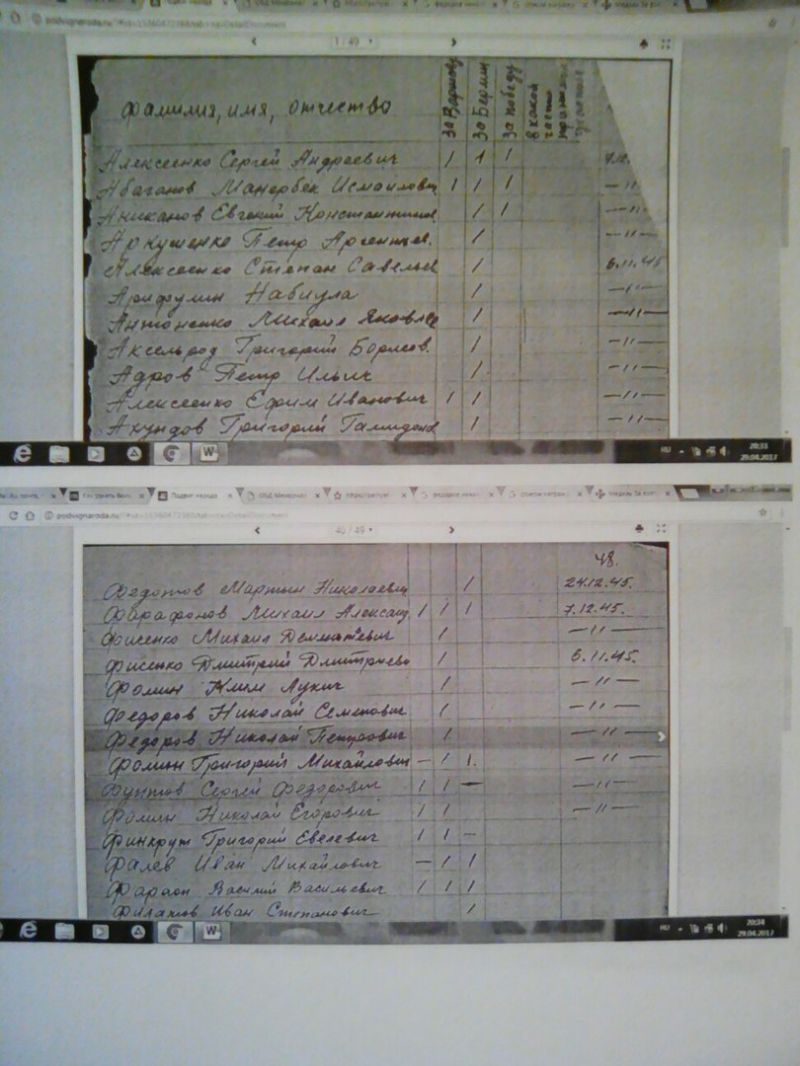 podvignaroda.ru
1 / 49
фамилия, имя, отчество
за Варшаву
за Берлин
за победу
в какой
части
Алексеенко Сергей Андреевич 1 1 1 7.12.
Абаганов Манербек Исмаилович 1 1 1 —11—
Аниканов Евгений Константинов 1 1 —11—
Аркушенко Петр Аргентьев. 1 —11—
Алексеенко Степан Савельев 1 6.11.45
Арифулин Набиула 1 —11—
Антоненко Михаил Яковлев 1 —11—
Аксельрод Григорий Борисов. 1 —11—
Адров Петр Ильич 1 —11—
Алексеенко Ефим Иванович 1 1 —11—
Ахундов Григорий Гамидов 1 —11—
RU 20:33
29.04.2017
Подвиг народа
podvignaroda.ru
46 / 49
48.
Федотов Мартын Николаевич 1 24.12.45.
Фарафонов Михаил Александ 1 1 1 7.12.45.
Фисенко Михаил 1 —11—
Фисенко Дмитрий Дмитриево 1 6.11.45.
Фомин Клим Лукич 1 —11—
Федоров Николай Семенович 1 —11—
Федоров Николай Петрович 1 —11—
Фомин Григорий Михайлович — 1 1. —11—
Фунтов Сергей Федорович 1 1 — —11—
Фомин Николай Егорович 1 1 —11—
Финкрут Григорий Евелевич 1 1 —
Фалев Иван Михайлович — 1 1
Фараон Василий Васильевич 1 1 1
Филатов Иван Степанович 1
RU 20:34
29.04.2017